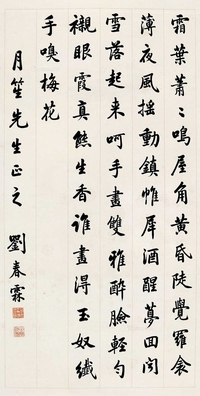 霜葉蕭〻鳴屋角黄昏陡覺羅衾
薄夜風摇動鎮帷犀酒醒夢回闻
雪落起来呵手畫雙雅醉臉輕勻
襯眼霞真態生香誰畫得玉奴纖
手嗅梅花
月笙先生正之
劉春霖